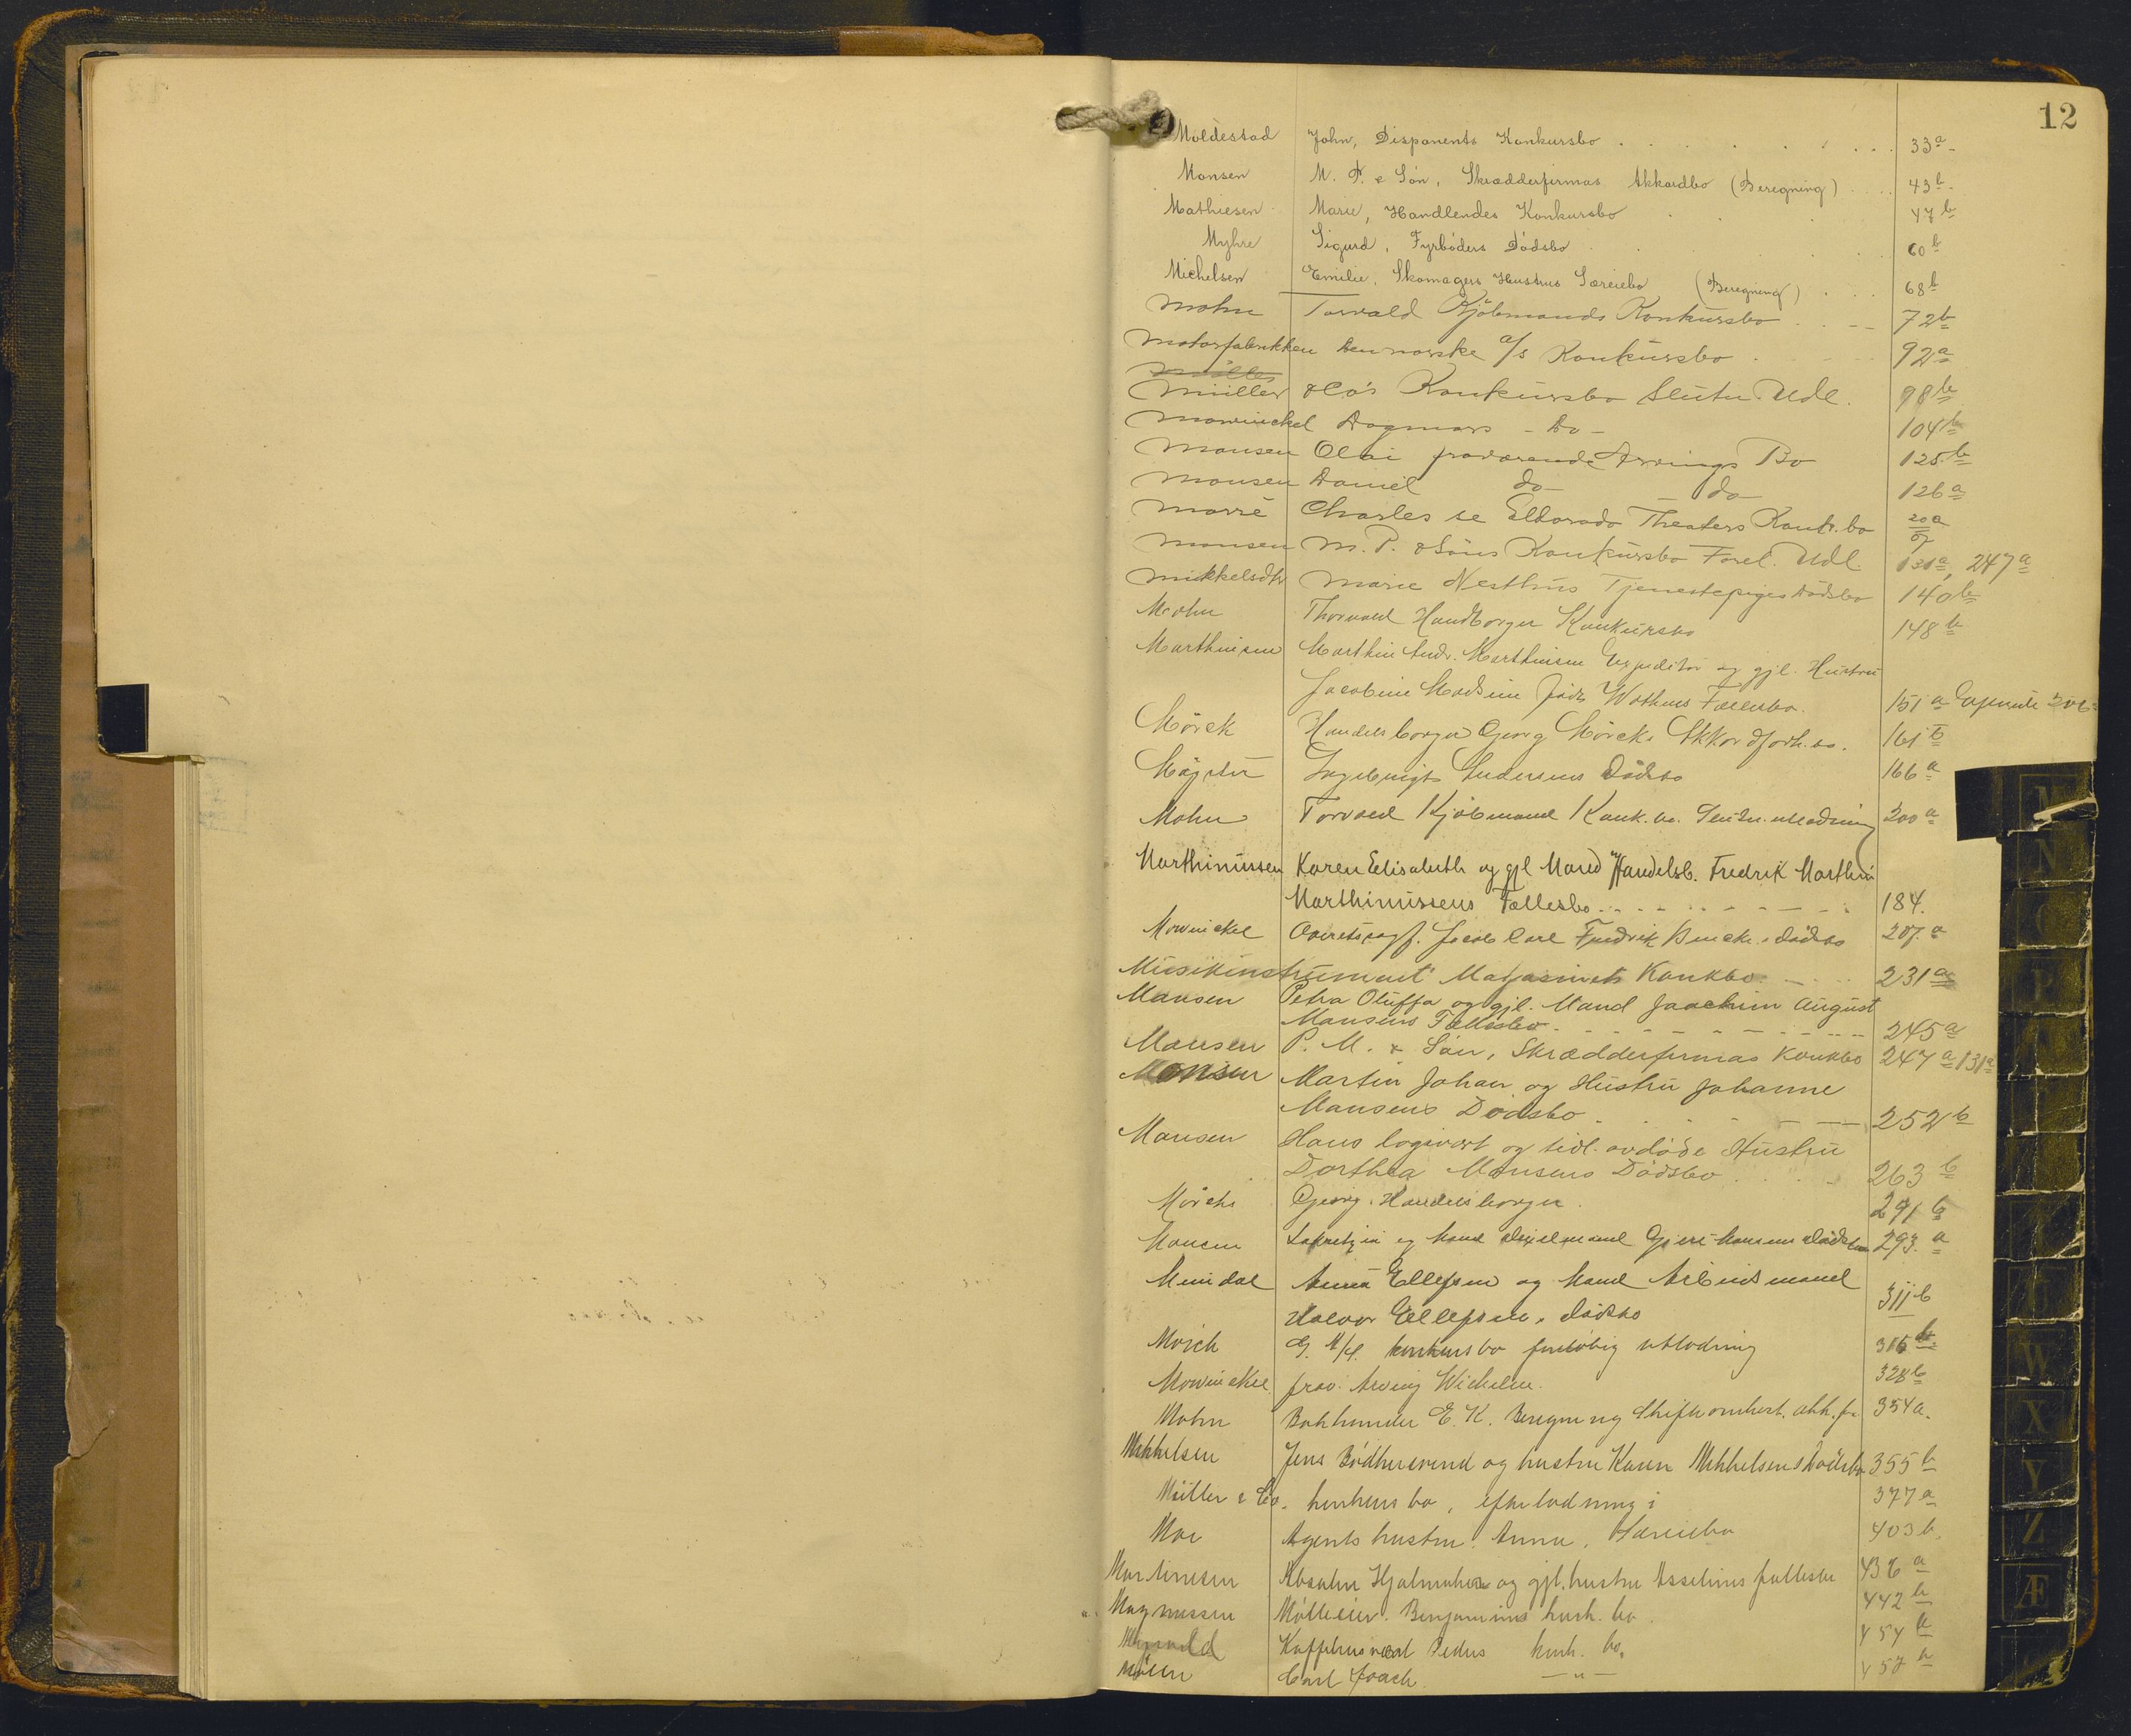 12
Moldestad John, Disponents Konkursbo 33a
Monsen M. P. & Søn, Skrædderfirmas Akkordbo (Beregning) 43b
Mathiesen Marie, Handlendes Konkursbo 47b
Myhre Sigurd, Fyrbøders Dødsbo 60b
Michelsen Emilie, Skomagers Hustrus Særeiebo (Beregning) 68b
Mohn Torvald Kjøbmands Konkursbo 72b
Motorfabrikken Den norske a/s Konkursbo 92a
Müller
Müller & Co's Konkursbo Slutn. Udl. 98b
Mowinckel Dagmars - Do - 104b
Monsen Olai fraværende Arvings Bo 125b
Monsen Daniel do do 126a
Morré Charles se Eldorado Theaters Konk. bo 20a
Monsen M. P. & Søns Konkursbo Forel. Udl. 131a, 247a
Mikkelsdtr Marie Nesthus Tjenestepiges Dødsbo 140b
Mohn Thorvald Handborger Konkursbo 148b
Marthinsen Marthin Andr. Marthinsen Expeditør og gjl. Hustru
Jacobine Madsine født Wathnes Fællesbo. 151a
Mörck Handelsborger Georg Mörcks Akkordforh. bo. 161b
Møgster Ingebrigt Andersens Dødsbo 166a
Mohn Torvald Kjøbmand Konk. bo. Slutn. utlodning 200a
Marthinussen Karen Elisabeth og gjl Mand Handelsb. Fredrik Marthin
Marthinussens Fællesbo 184.
Mowinckel Overretssagf. Jacob Carl Fredrik Dødsbo 207.a
Musikinstrument Magasinets Konkbo 231a
Monsen Petra Oluffa og gjl. Mand Joachim August
Monsens Fællesbo 245a
Monsen P. M. & Søn, Skrædderfirmas Konkbo 247a 131a
Monsen Martin Johan og Hustru Johanne
Monsens Dødsbo 252b
Monsen Hans logivært og tidl. avdøde Hustru
Dorthea Monsens Dødsbo 263b
Mörchs Georg. Handelsborger. 291b
Monsen og Mand Monsens Dødsbo 293.a
Mundal Anna Ellefsen og Mand Arbeidsmand
Halvor Ellefsens, dødsbo 311b
Mörch G. konkursbo foreløbig utlodning 316b
Mowinckel frav. Arving Wilhelm. 328b
Mohn Bokholder E. K. Beregning Skifteomkost. akk. f. 354a.
Mikkelsen Jens Bødkersvend og hustru Karen Mikkelsens Dødsbo 355b
Müller & Co. konkursbo, efterlodning i 377a
Moe Agents hustru. Anna, Særeiebo 403b.
Martinsen Absalon Hjalmahr og gjl. hustru Asselines fællesbo 436a
Magnussen Mølleeier. Benjamins konk. bo 442b
Kaffehusvært Peders konk. bo. 454b
Møller Carl Joach. — " — 457a
M
N
O
P
W
X
Y
Z
Æ